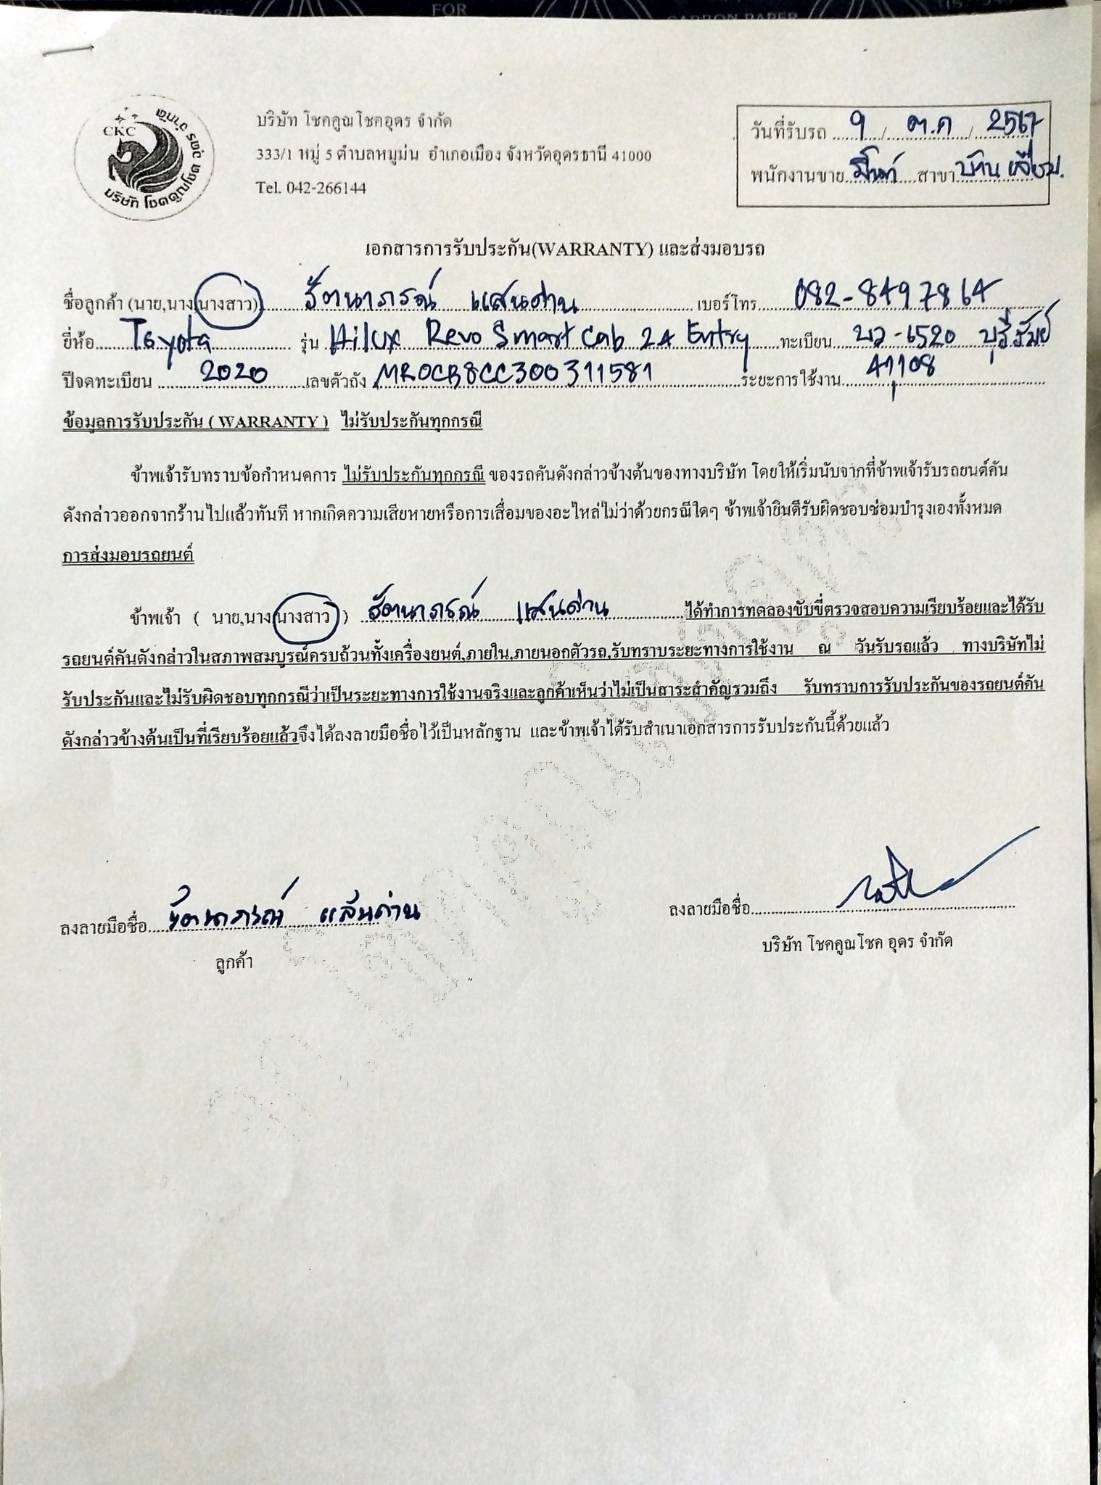 FOR
CARBON PAPER
CKC
บริษัท โชคคูณโชค อุดร จำกัด
บริษัท โชคคูณ โชคอุดร จำกัด
333/1 หมู่ 5 ตำบลหมูม่น อำเภอเมือง จังหวัดอุดรธานี 41000
Tel. 042-266144
วันที่รับรถ 9 / ต.ค / 2567
พนักงานขาย สาขา บ้านเลื่อม.
เอกสารการรับประกัน(WARRANTY) และส่งมอบรถ
ชื่อลูกค้า (นาย,นาง,นางสาว) รัตนาภรณ์ แสนด่าน เบอร์โทร 082-8497864
ยี่ห้อ Toyota รุ่น Hilux Revo Smart Cab 2.4 Entry ทะเบียน บว-6520 บุรีรัมย์
ปีจดทะเบียน 2020 เลขตัวถัง MR0CB8CC300311581 ระยะการใช้งาน 41,108
ข้อมูลการรับประกัน ( WARRANTY ) ไม่รับประกันทุกกรณี
ข้าพเจ้ารับทราบข้อกำหนดการ ไม่รับประกันทุกกรณี ของรถคันดังกล่าวข้างต้นของทางบริษัท โดยให้เริ่มนับจากที่ข้าพเจ้ารับรถยนต์คัน
ดังกล่าวออกจากร้านไปแล้วทันที หากเกิดความเสียหายหรือการเสื่อมของอะไหล่ไม่ว่าด้วยกรณีใดๆ ข้าพเจ้ายินดีรับผิดชอบซ่อมบำรุงเองทั้งหมด
การส่งมอบรถยนต์
ข้าพเจ้า ( นาย,นาง,นางสาว ) รัตนาภรณ์ แสนด่าน ได้ทำการทดลองขับขี่ตรวจสอบความเรียบร้อยและได้รับ
รถยนต์คันดังกล่าวในสภาพสมบูรณ์ครบถ้วนทั้งเครื่องยนต์,ภายใน,ภายนอกตัวรถ,รับทราบระยะทางการใช้งาน ณ วันรับรถแล้ว ทางบริษัทไม่
รับประกันและไม่รับผิดชอบทุกกรณีว่าเป็นระยะทางการใช้งานจริงและลูกค้าเห็นว่าไม่เป็นสาระสำคัญรวมถึง รับทราบการรับประกันของรถยนต์คัน
ดังกล่าวข้างต้นเป็นที่เรียบร้อยแล้วจึงได้ลงลายมือชื่อไว้เป็นหลักฐาน และข้าพเจ้าได้รับสำเนาเอกสารการรับประกันนี้ด้วยแล้ว
ลงลายมือชื่อ รัตนาภรณ์ แสนด่าน
ลูกค้า
ลงลายมือชื่อ
บริษัท โชคคูณ โชค อุดร จำกัด